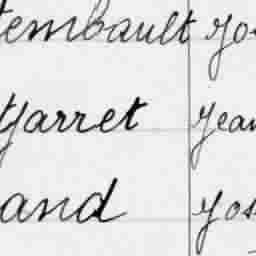 tembault Jos
Yarret Jean
and Jos